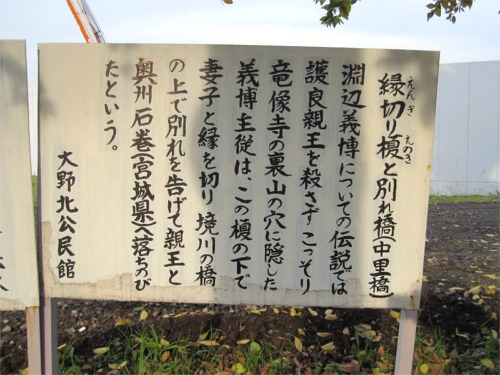 縁切り榎と別れ橋(中里橋)
えんぎ
えのき
淵辺義博についての伝説では
護良親王を殺さずこっそり
竜像寺の裏山の穴に隠した
義博主従は、この榎の下で
妻子と縁を切り境川の橋
の上で別れを告げて親王と
奥州石巻(宮城県)へ落ちのび
たという。
大野北公民館